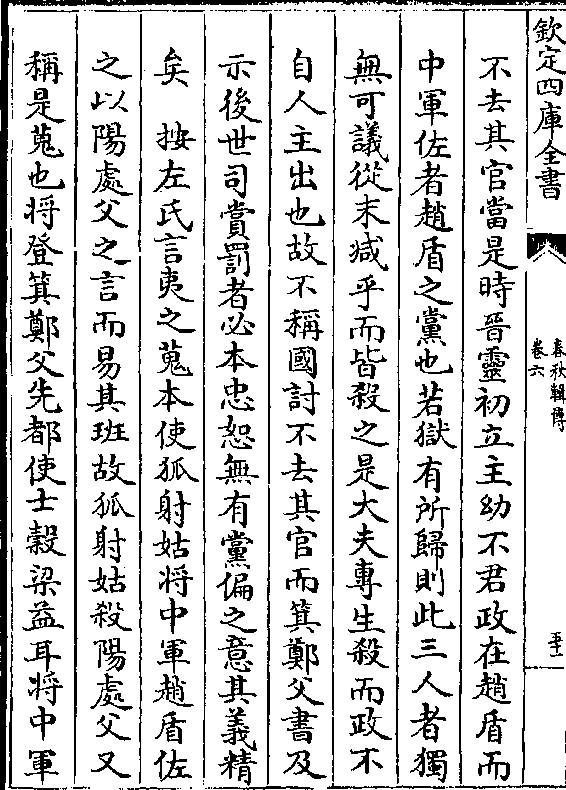 欽定四庫全書
春秋輯傳
卷六
不去其官當是時晉靈初立主幼不君政在趙盾而
中軍佐者趙盾之黨也若獄有所歸則此三人者獨
無可議從末减乎而皆殺之是大夫專生殺而政不
自人主出也故不稱國討不去其官而箕鄭父書及
示後世司賞罰者必本忠恕無有黨偏之意其義精
矣　按左氏言夷之蒐本使狐射姑将中軍趙盾佐
之以陽處父之言而易其班故狐射姑殺陽處父又
稱是蒐也将登箕鄭父先都使士縠梁益耳将中軍